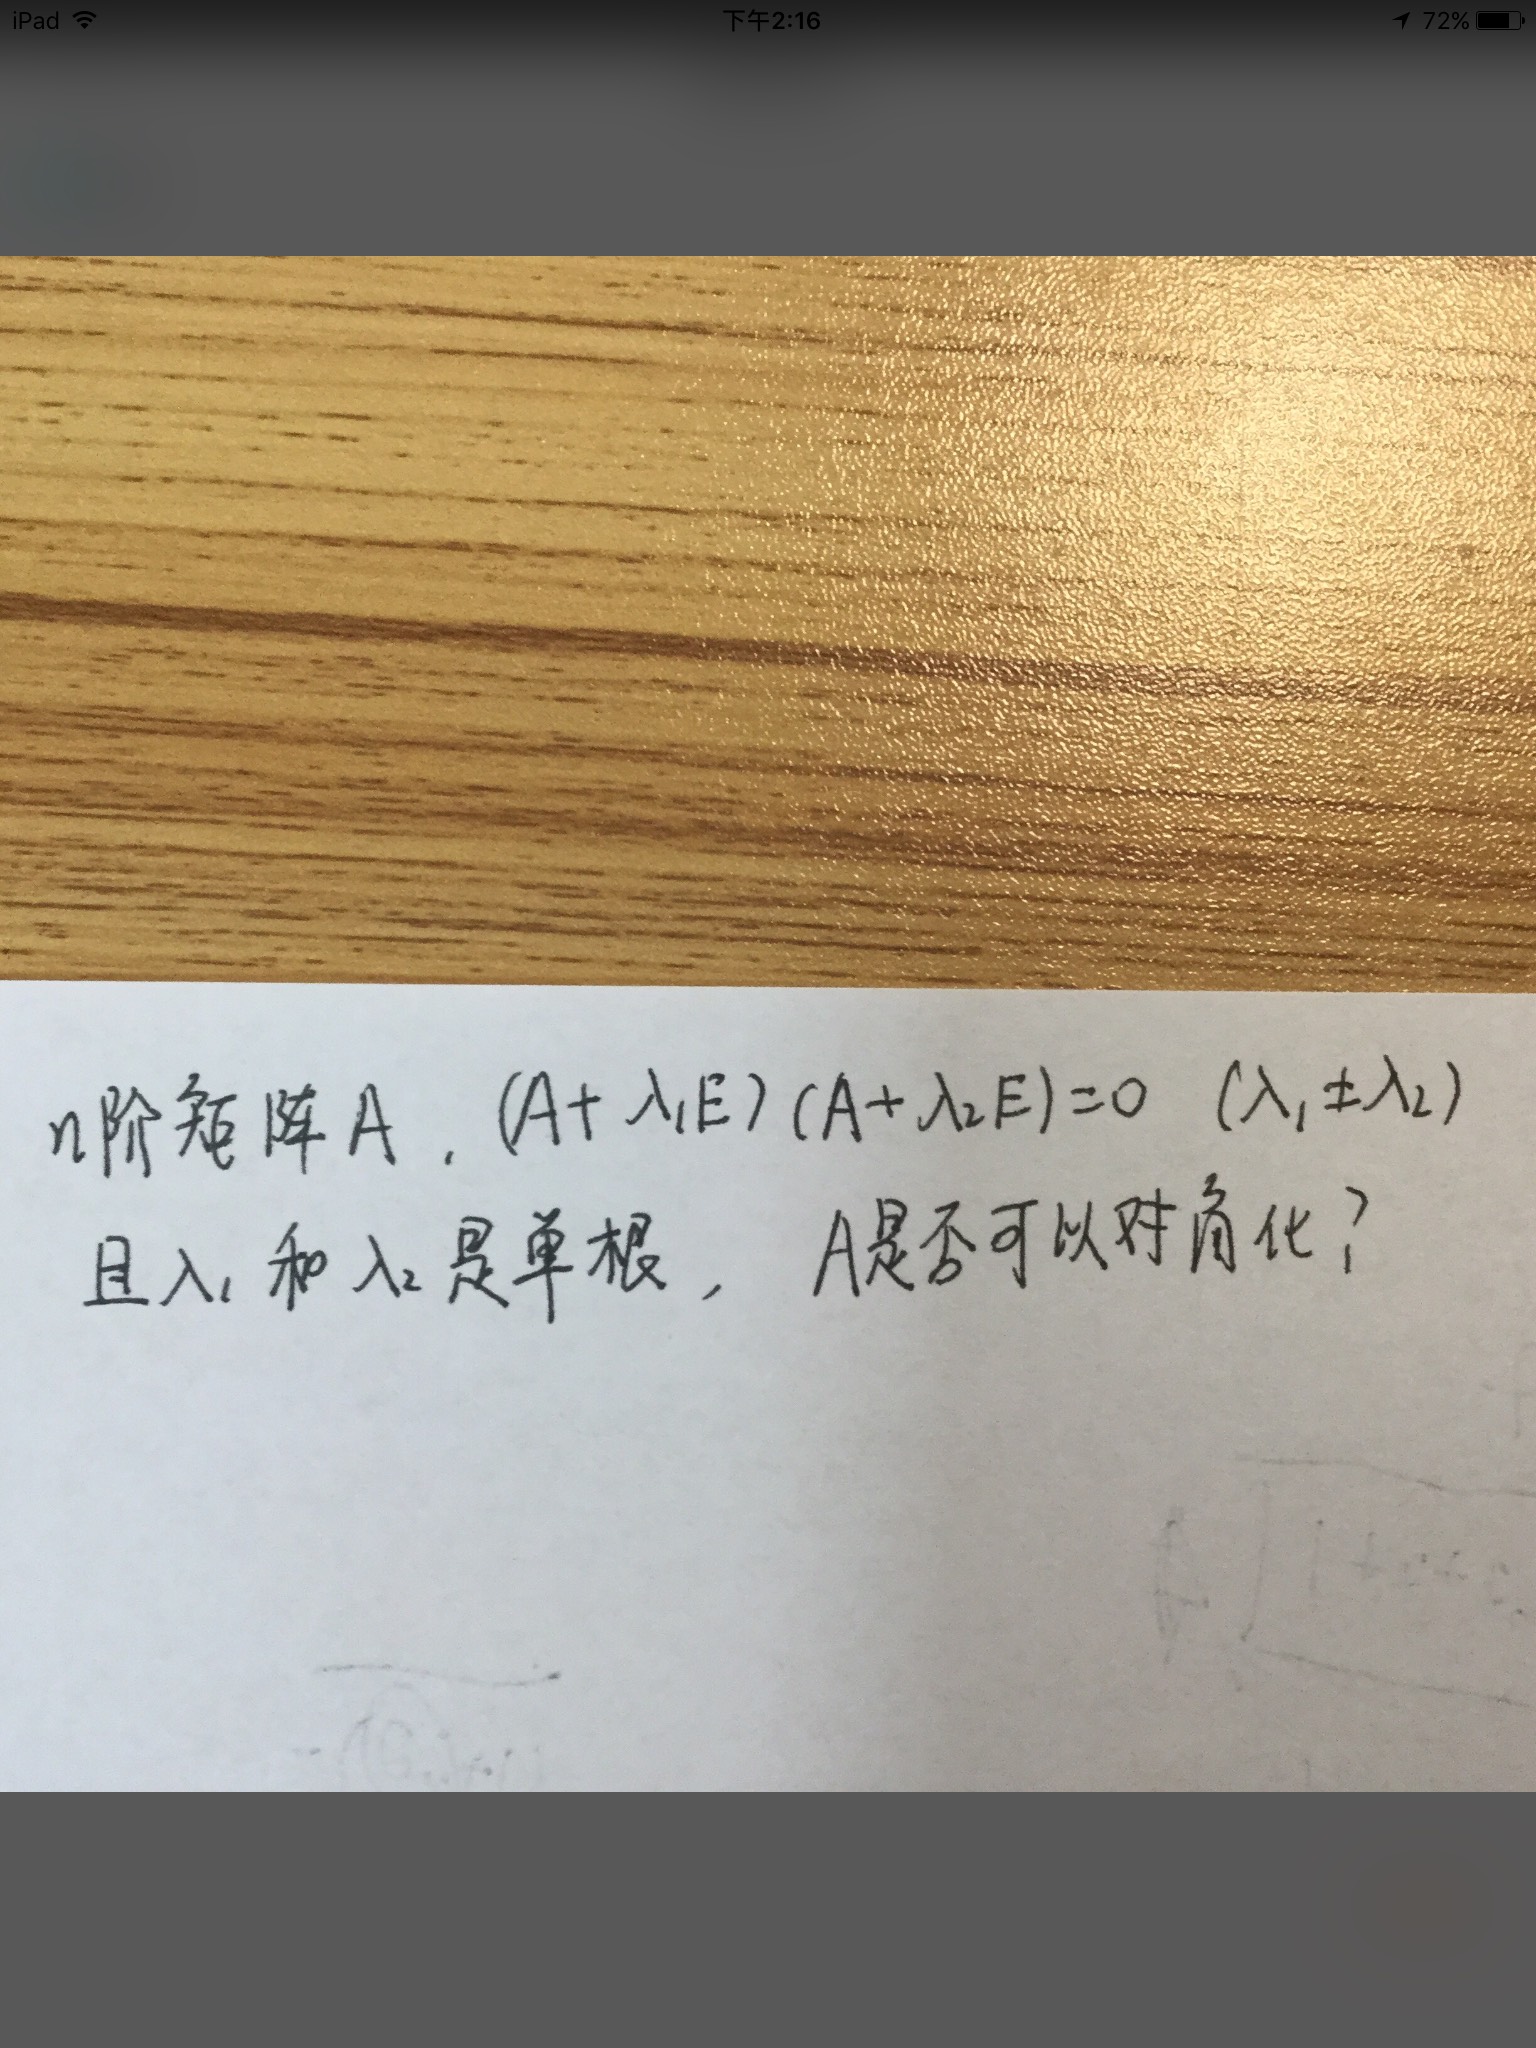 iPad 下午2:16 72%
n阶矩阵A, (A+λ₁E)(A+λ₂E)=0 (λ₁≠λ₂)
且λ₁和λ₂是单根, A是否可以对角化?